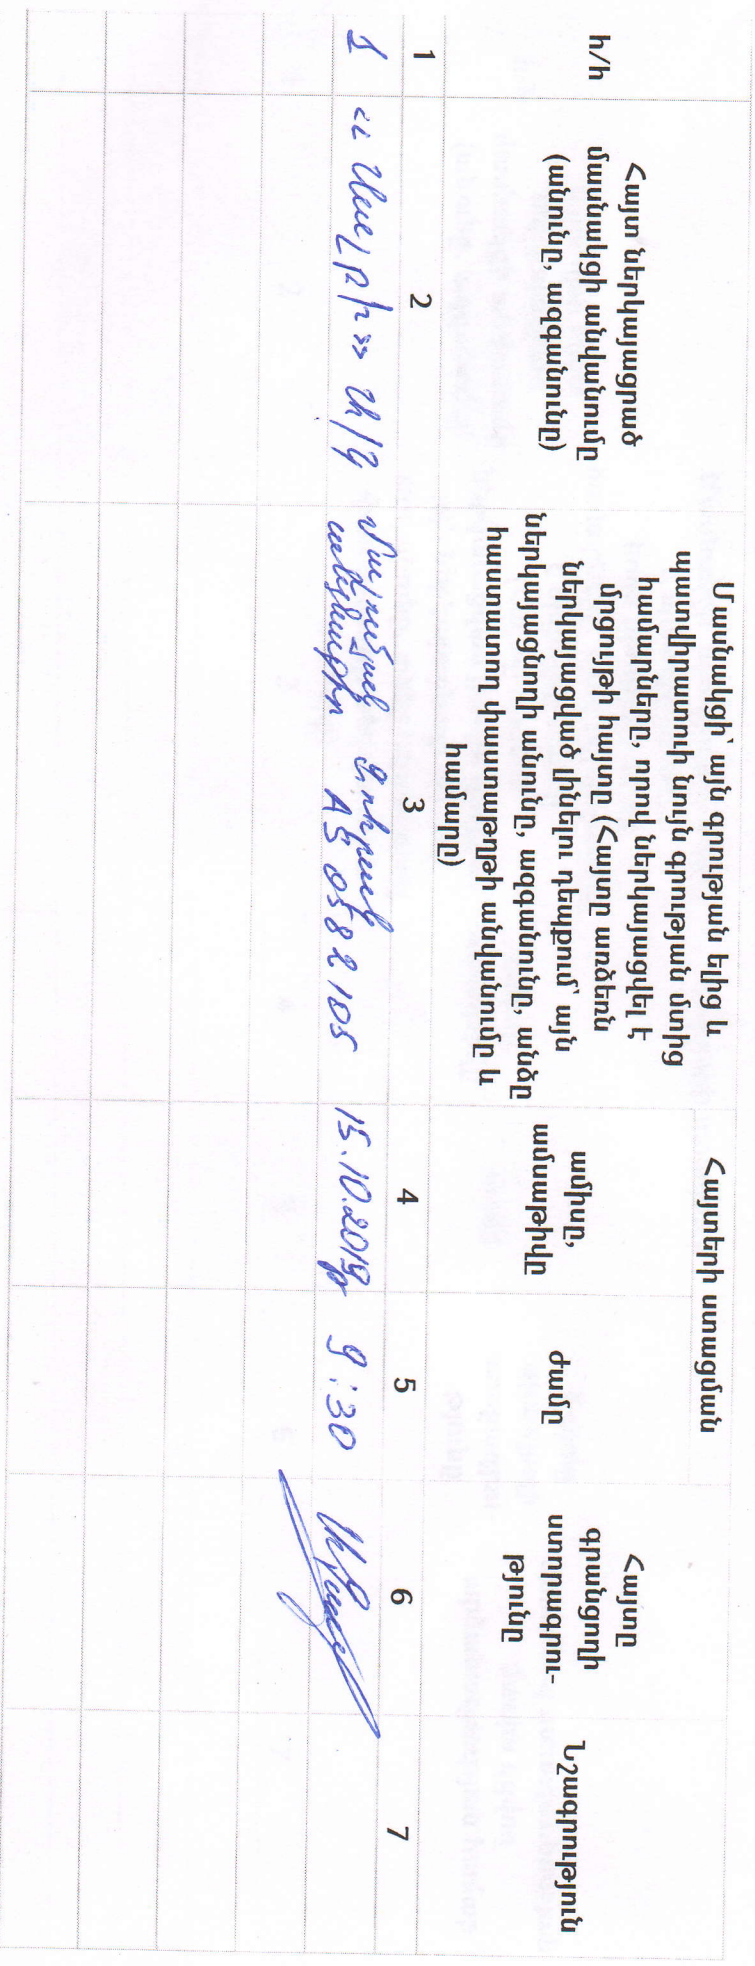 հ/հ
Հայտ ներկայացրած
մասնակցի անվանումը
(անունը, ազգանունը)
Մասնակցի՝ այն գրության ելից և
պատվիրատուի նույն գրության մտից
համարները, որով ներկայացվել է
գնման հայտը (Հայտը առձեռն
ներկայացված լինելու դեպքում՝ այն
ներկայացնողի անունը, ազգանունը, անձը
հաստատող փաստաթղթի անվանումը և
համարը)
Հայտերի ստացման
ամիսը,
ամսաթիվը
ժամը
Հայտը
գրանցողի
ստորագրու-
թյունը
Նշագրություն
1
2
3
4
5
6
7
1
Ա/Ձ
AS 0582105
15.10.2019թ
9:30